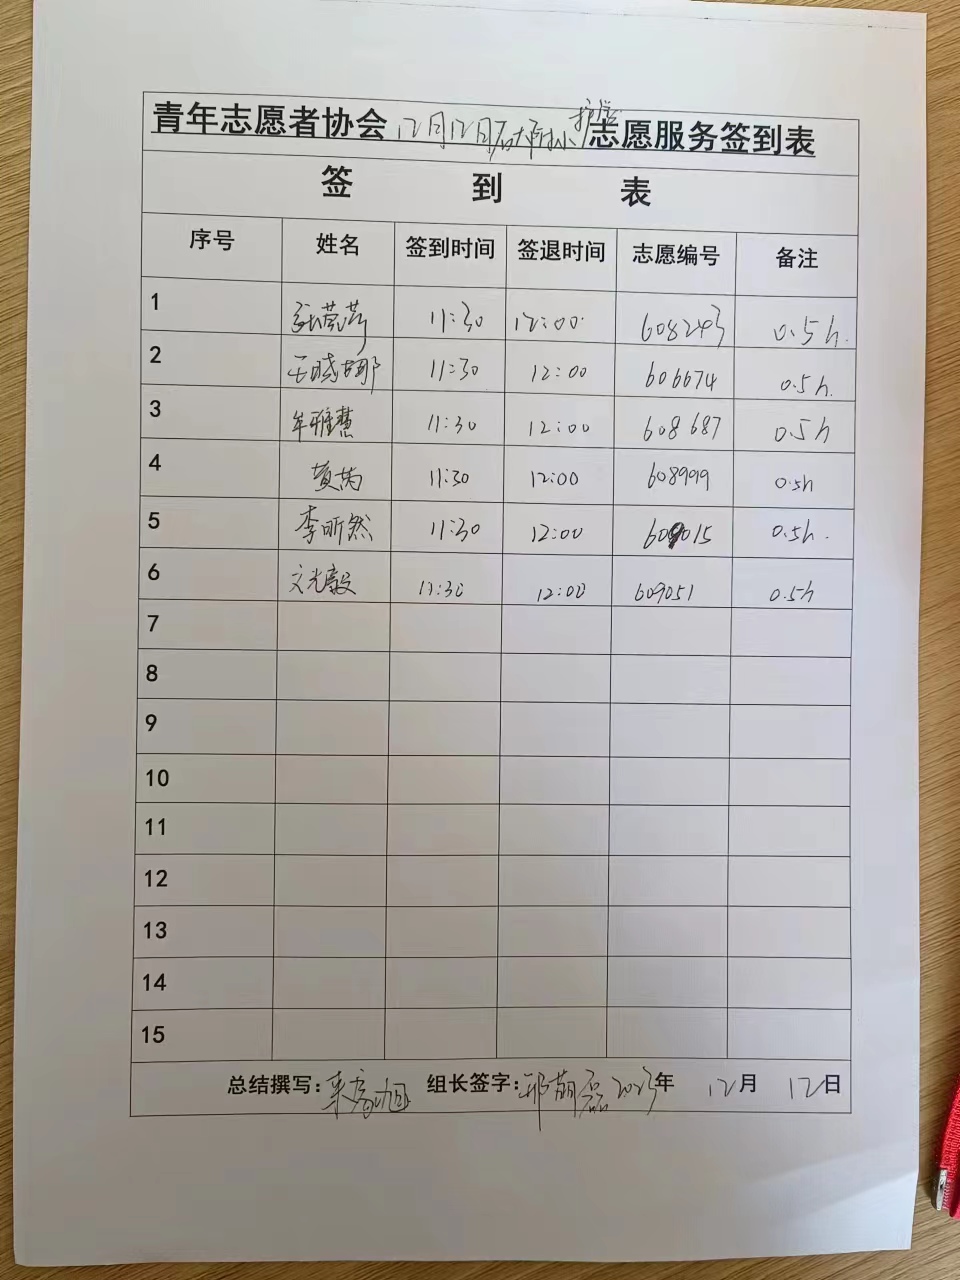 青年志愿者协会12月12日石大附小护学志愿服务签到表
签 到 表
序号 姓名 签到时间 签退时间 志愿编号 备注
1 11:30 12:00 608243 0.5h.
2 王晓娜 11:30 12:00 606674 0.5h.
3 牟雅慧 11:30 12:00 608687 0.5h
4 黄芮 11:30 12:00 608999 0.5h
5 李昕然 11:30 12:00 609015 0.5h.
6 文光毅 11:30 12:00 609051 0.5h
7
8
9
10
11
12
13
14
15
总结撰写: 组长签字: 2023年 12月 12日